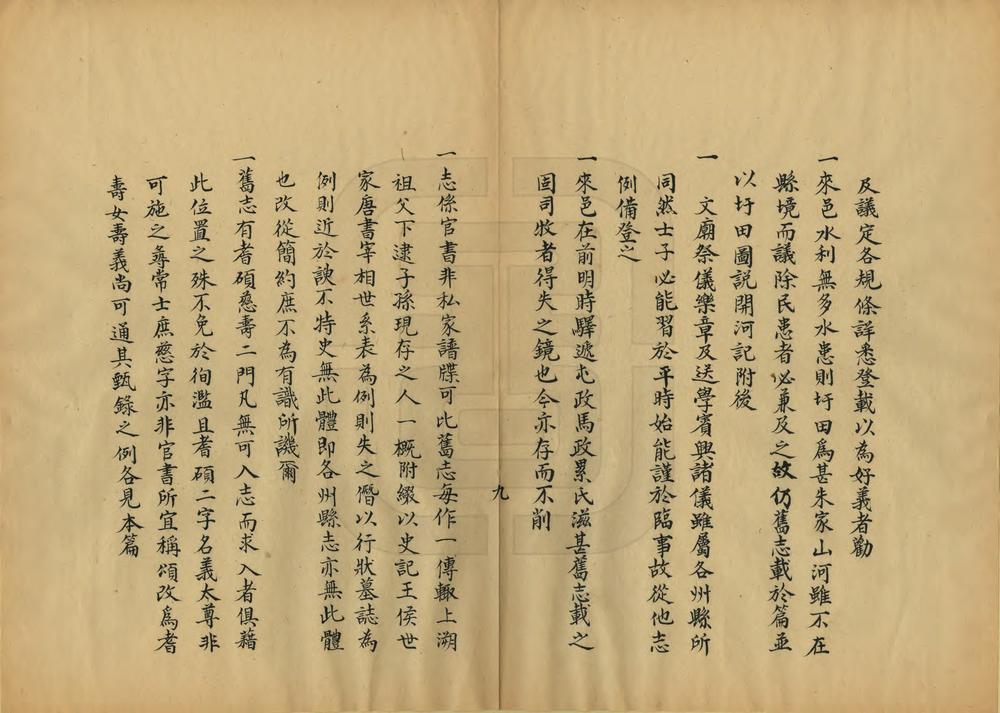 及議定各規條詳悉登載以為好義者勸
一來邑水利無多水患則圩田為甚朱家山河雖不在
縣境而議除民患者必兼及之故仍舊志載於篇並
以圩田圖説開河記附後
一
文廟祭儀樂章及送學賓興諸儀雖屬各州縣所
同然士子必能習於平時始能謹於臨事故從他志
例備登之
一來邑在前明時驛遞屯政馬政累民滋甚舊志載之
固司牧者得失之鏡也今亦存而不削
九
一志係官書非私家譜牒可比舊志每作一傳輙上溯
祖父下逮子孫現存之人一概附綴以史記王侯世
家唐書宰相世系表為例則失之僭以行狀墓誌為
例則近於諛不特史無此體即各州縣志亦無此體
也改從簡約庶不為有識所譏爾
一舊志有耆碩慈壽二門凡無可入志而求入者俱藉
此位置之殊不免於徇濫且耆碩二字名義太尊非
可施之尋常士庶慈字亦非官書所宜稱頌改為耆
壽女壽義尚可通其甄錄之例各見本篇